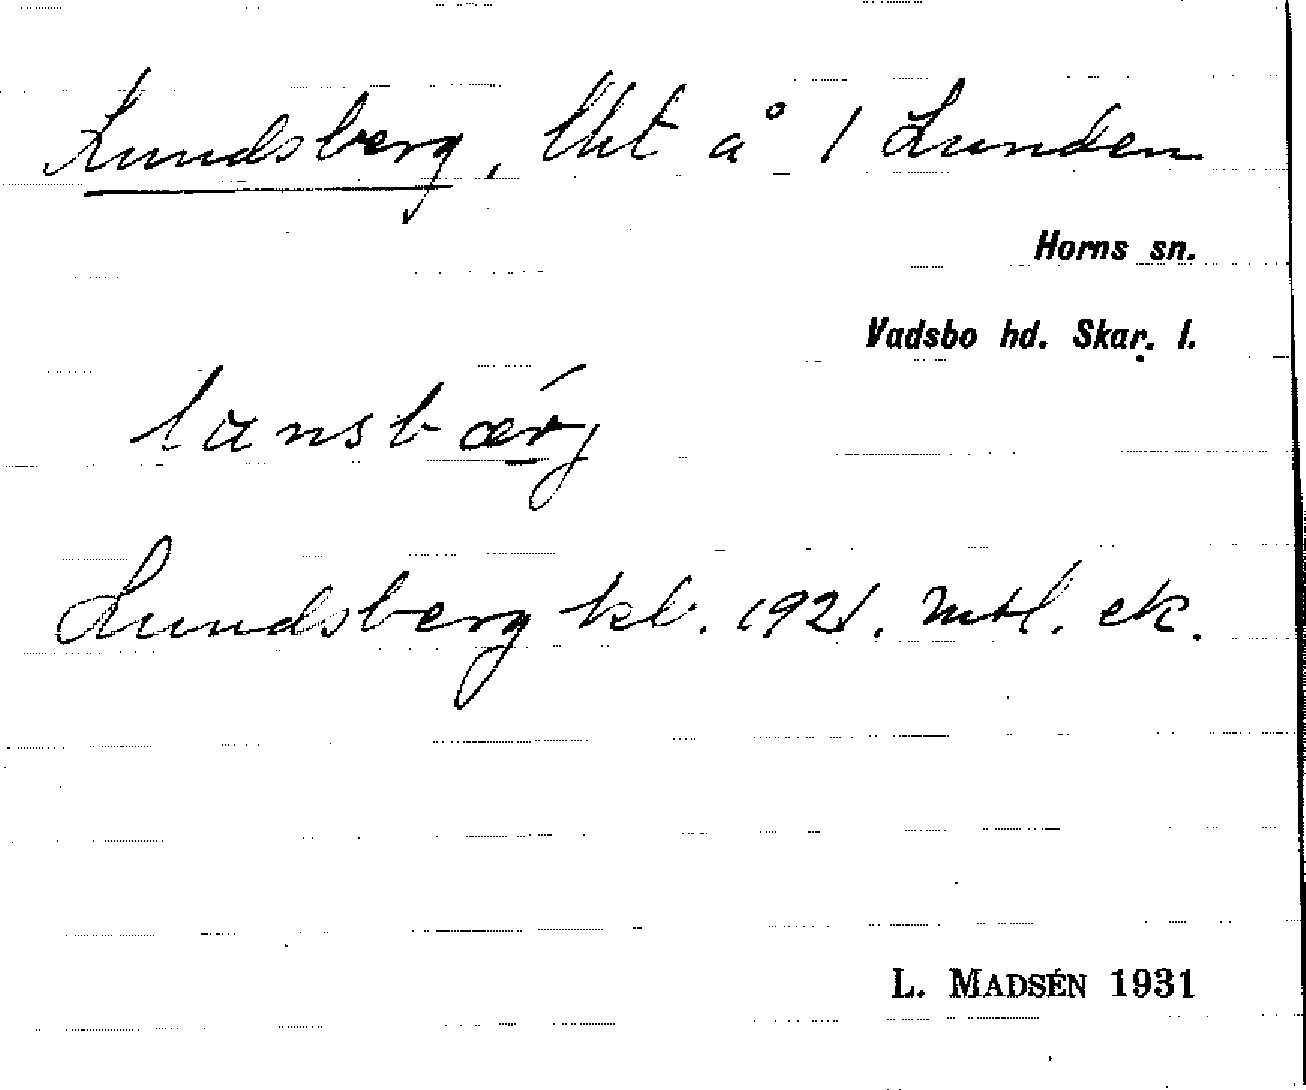 Lundsberg, lht å 1 Lunden
Horns sn.
Vadsbo hd. Skar. l.
Lundsberg kb. 1921. mtl. ek.
L. MADSÉN 1931